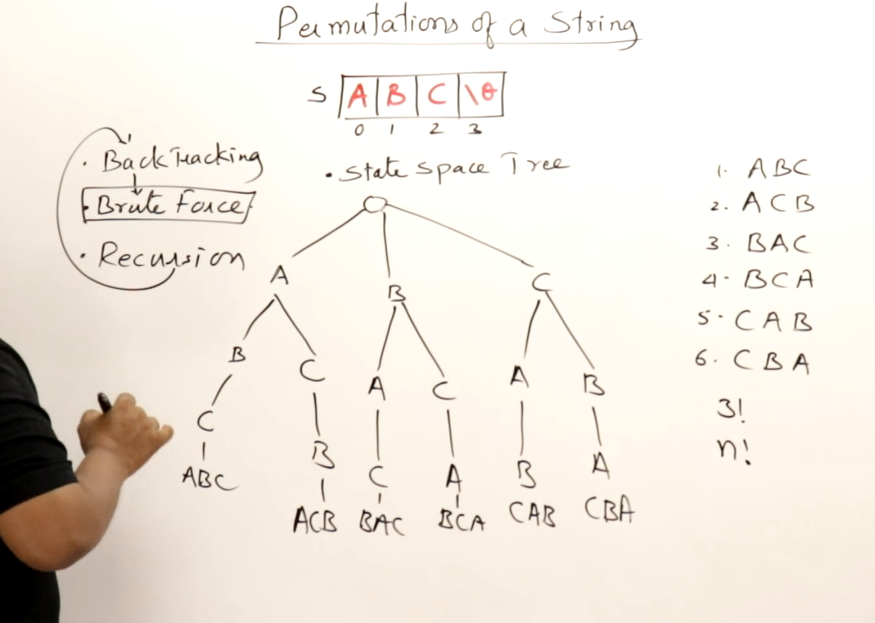 Permutations of a String
S A B C \0
0 1 2 3
· BackTracking
· Brute Force
· Recursion
· State Space Tree
A B C
B C A C A B
C B C A B A
ABC ACB BAC BCA CAB CBA
1. ABC
2. ACB
3. BAC
4. BCA
5. CAB
6. CBA
3!
n!